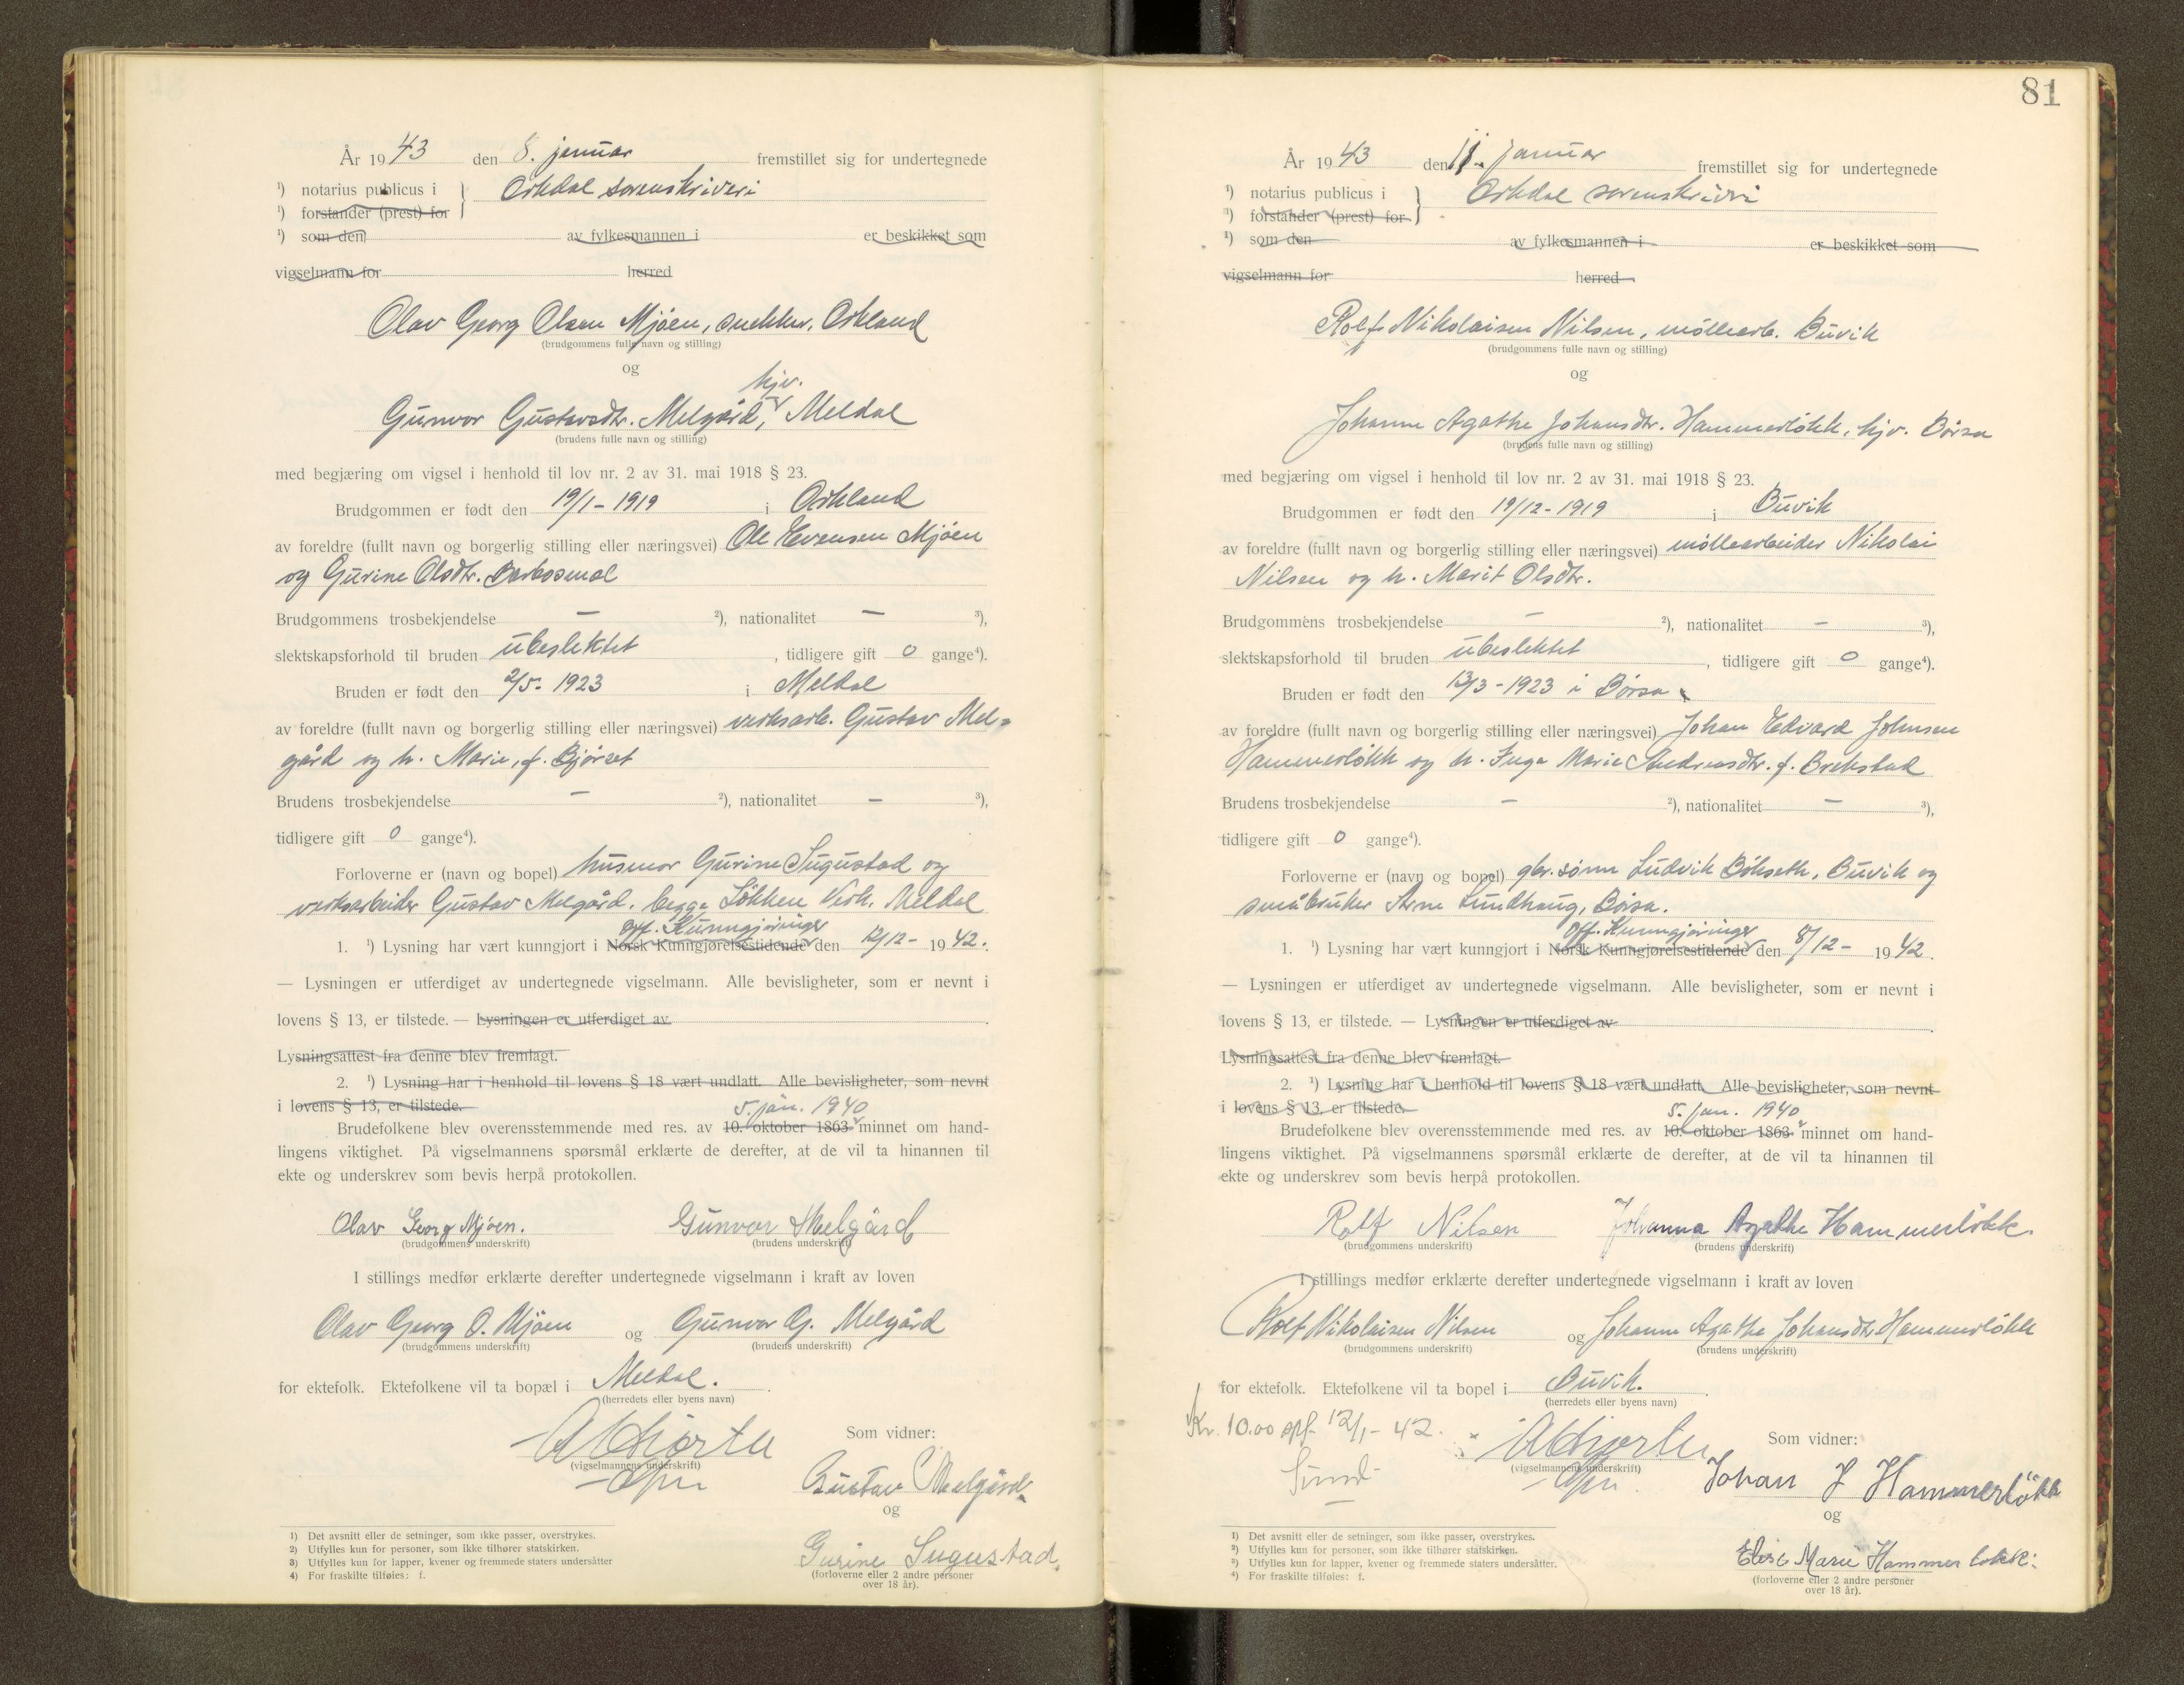 År 1943 den 8. januar fremstillet sig for undertegnede
¹) notarius publicus i } Orkdal sorenskriveri
¹) forstander (prest) for
¹) som den av fylkesmannen i er beskikket som
vigselmann for herred
Olav Georg Olsen Mjøen, snekker, Orkland
(brudgommens fulle navn og stilling)
og
hjv.
Gunvor Gustavsdtr. Melgård, Meldal
(brudens fulle navn og stilling)
med begjæring om vigsel i henhold til lov nr. 2 av 31. mai 1918 § 23.
Brudgommen er født den 19/1 - 1919 i Orkland
av foreldre (fullt navn og borgerlig stilling eller næringsvei) Ole Evensen Mjøen
og Gurine Olsdtr.
Brudgommens trosbekjendelse — ²), nationalitet — ³),
slektskapsforhold til bruden ubeslektet, tidligere gift 0 gange⁴).
Bruden er født den 2/5 - 1923 i Meldal
av foreldre (fullt navn og borgerlig stilling eller næringsvei) verksarb. Gustav Mel=
gård og h. Marie, f. Bjørset
Brudens trosbekjendelse — ²), nationalitet — ³),
tidligere gift 0 gange⁴).
Forloverne er (navn og bopel) husmor Gurine Sugustad og
verksarbeider Gustav Melgård, begge Løkken Verk, Meldal
Off. Kunngjøringer
1. ¹) Lysning har vært kunngjort i Norsk Kunngjørelsestidende den 12/12 - 1942.
— Lysningen er utferdiget av undertegnede vigselmann. Alle bevisligheter, som er nevnt i
lovens § 13, er tilstede. — Lysningen er utferdiget av
Lysningsattest fra denne blev fremlagt.
2. ¹) Lysning har i henhold til lovens § 18 vært undlatt. Alle bevisligheter, som nevnt
i lovens § 13, er tilstede.
5. jan. 1940
Brudefolkene blev overensstemmende med res. av 10. oktober 1863 minnet om hand-
lingens viktighet. På vigselmannens spørsmål erklærte de derefter, at de vil ta hinannen til
ekte og underskrev som bevis herpå protokollen.
Olav Georg Mjøen. Gunvor Melgård
(brudgommens underskrift) (brudens underskrift)
I stillings medfør erklærte derefter undertegnede vigselmann i kraft av loven
Olav Georg O. Mjøen og Gunvor G. Melgård
(brudgommens underskrift) (brudens underskrift)
for ektefolk. Ektefolkene vil ta bopæl i Meldal.
(herredets eller byens navn)
Som vidner:
(vigselmannens underskrift)
Gustav Melgård
og
Gurine Sugustad
(forloverne eller 2 andre personer
over 18 år).
1) Det avsnitt eller de setninger, som ikke passer, overstrykes.
2) Utfylles kun for personer, som ikke tilhører statskirken.
3) Utfylles kun for lapper, kvener og fremmede staters undersåtter
4) For fraskilte tilføies: f.
81
År 1943 den 11. januar fremstillet sig for undertegnede
¹) notarius publicus i } Orkdal sorenskriveri
¹) forstander (prest) for
¹) som den av fylkesmannen i er beskikket som
vigselmann for herred
Rolf Nikolaisen Nilsen, møllearb. Buvik
(brudgommens fulle navn og stilling)
og
Johanne Agathe Johansdtr. Hammerløkk, hjv. Børsa
(brudens fulle navn og stilling)
med begjæring om vigsel i henhold til lov nr. 2 av 31. mai 1918 § 23.
Brudgommen er født den 19/12 - 1919 i Buvik
av foreldre (fullt navn og borgerlig stilling eller næringsvei) møllearbeider Nikolai
Nilsen og h. Marit Olsdtr.
Brudgommens trosbekjendelse — ²), nationalitet — ³),
slektskapsforhold til bruden ubeslektet, tidligere gift 0 gange⁴).
Bruden er født den 13/3 - 1923 i Børsa
av foreldre (fullt navn og borgerlig stilling eller næringsvei) Johan Edvard Johnsen
Hammerløkk og h. Inga Marie Andreasdtr. f. Brekstad
Brudens trosbekjendelse — ²), nationalitet — ³),
tidligere gift 0 gange⁴).
Forloverne er (navn og bopel) gbr.sønn Ludvik Bökseth, Buvik og
småbruker Arne Lundhaug, Børsa.
Off. Kunngjøringer
1. ¹) Lysning har vært kunngjort i Norsk Kunngjørelsestidende den 8/12 - 1942.
— Lysningen er utferdiget av undertegnede vigselmann. Alle bevisligheter, som er nevnt i
lovens § 13, er tilstede. — Lysningen er utferdiget av
Lysningsattest fra denne blev fremlagt.
2. ¹) Lysning har i henhold til lovens § 18 vært undlatt. Alle bevisligheter, som nevnt
i lovens § 13, er tilstede.
5. jan. 1940
Brudefolkene blev overensstemmende med res. av 10. oktober 1863 minnet om hand-
lingens viktighet. På vigselmannens spørsmål erklærte de derefter, at de vil ta hinannen til
ekte og underskrev som bevis herpå protokollen.
Rolf Nilsen Johanna Agathe Hammerløkk.
(brudgommens underskrift) (brudens underskrift)
I stillings medfør erklærte derefter undertegnede vigselmann i kraft av loven
Rolf Nikolaisen Nilsen og Johanne Agathe Johansdtr. Hammerløkk
(brudgommens underskrift) (brudens underskrift)
for ektefolk. Ektefolkene vil ta bopel i Buvik.
(herredets eller byens navn)
Kr. 10.00 12/1 - 42.
Som vidner:
(vigselmannens underskrift)
Johan J Hammerløkk
og
Elise Marie Hammerløkk.
(forloverne eller 2 andre personer
over 18 år).
1) Det avsnitt eller de setninger, som ikke passer, overstrykes.
2) Utfylles kun for personer, som ikke tilhører statskirken.
3) Utfylles kun for lapper, kvener og fremmede staters undersåtter.
4) For fraskilte tilføies: f.